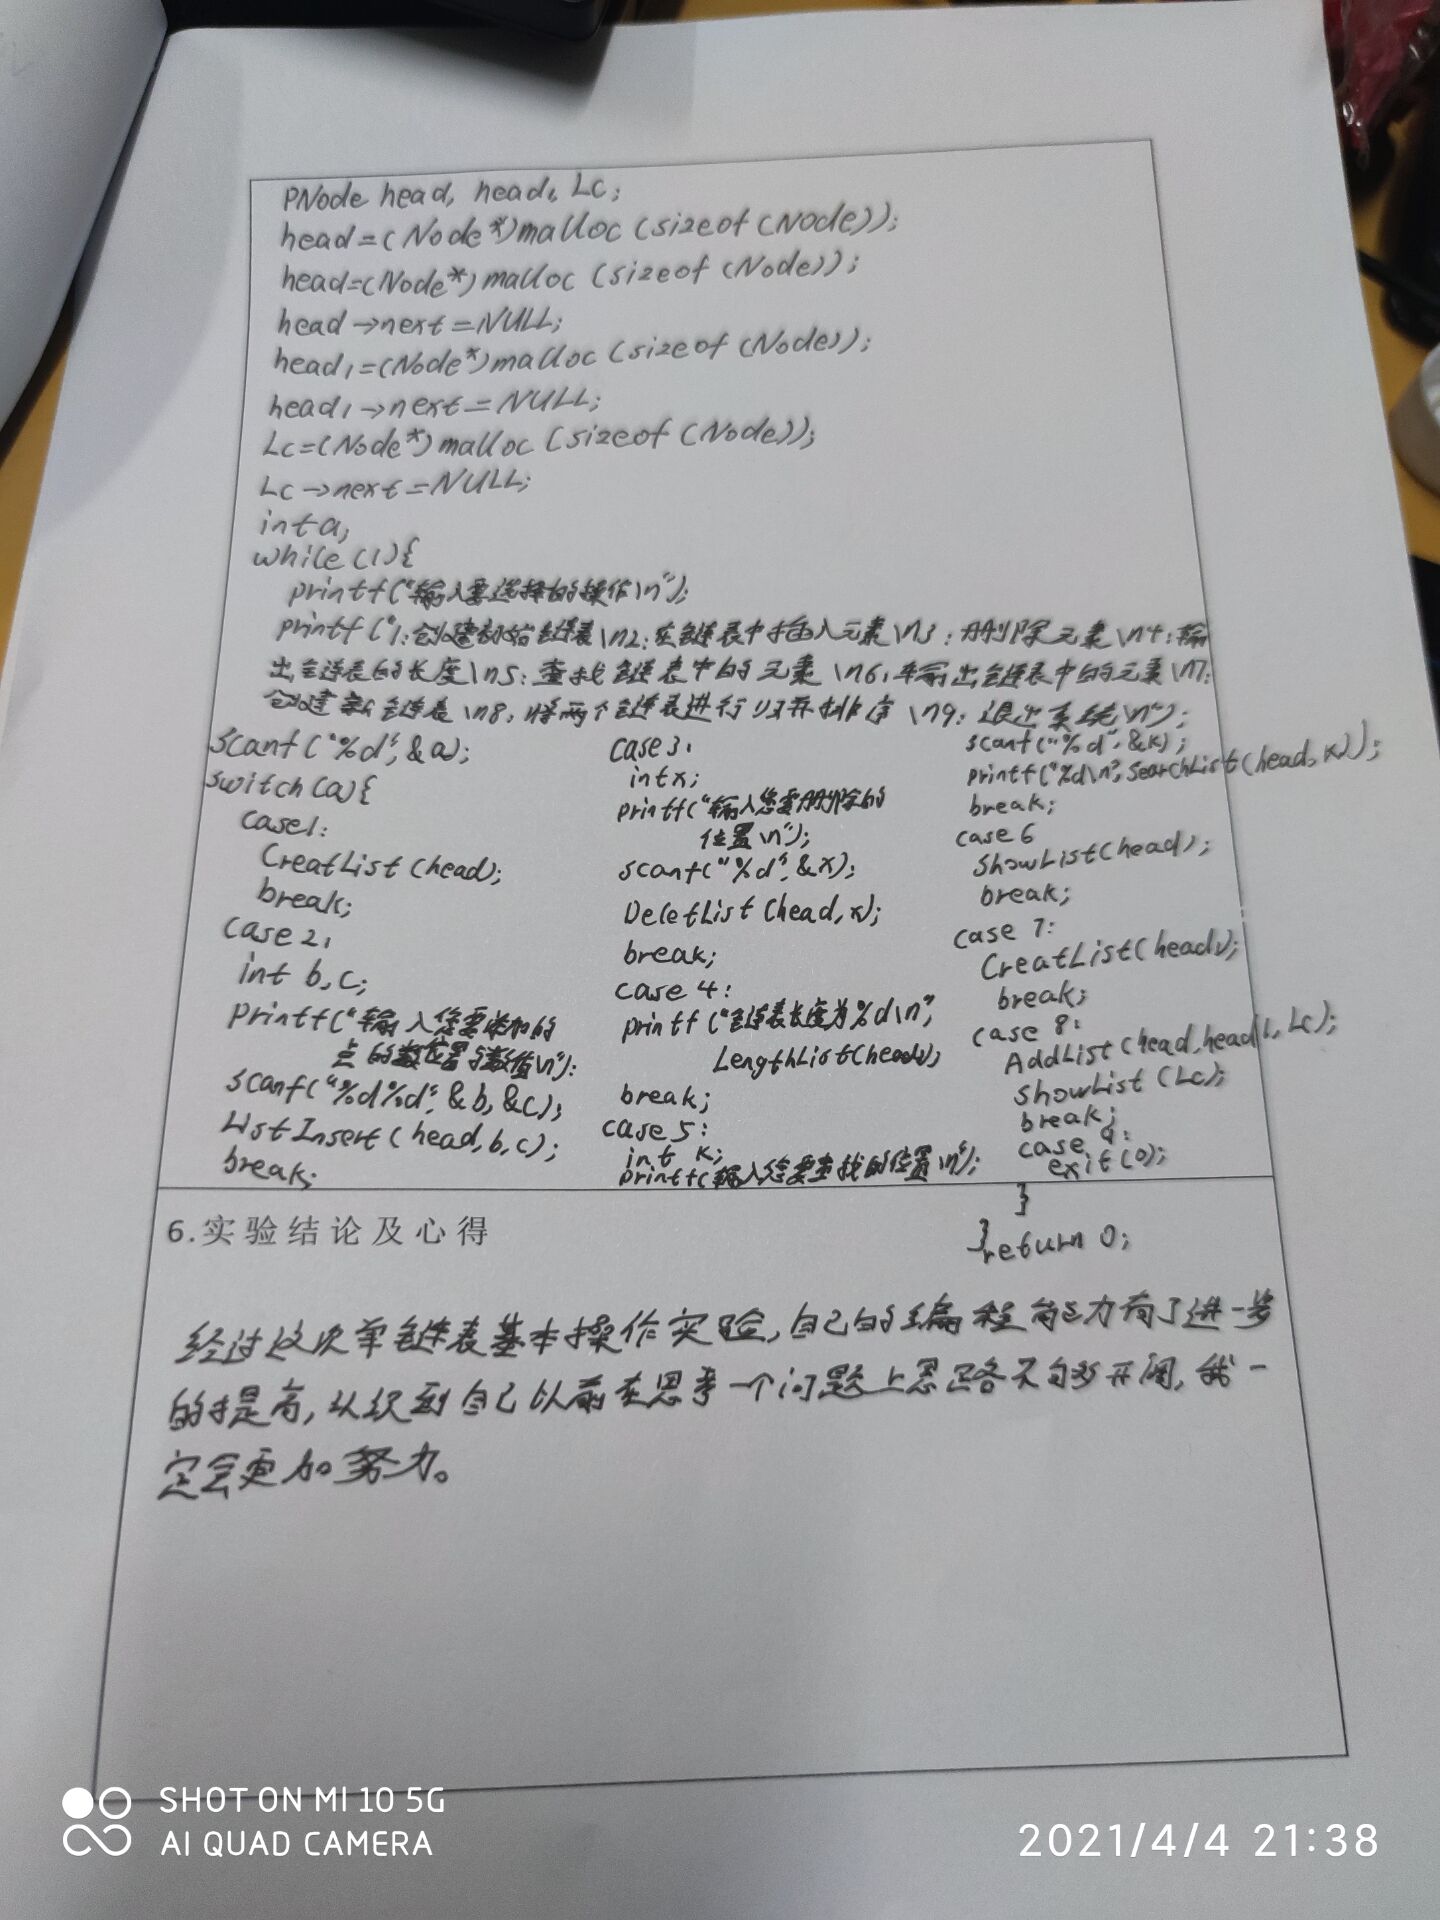 PNode head, head1, Lc;
head=(Node*)malloc(sizeof(Node));
head=(Node*)malloc(sizeof(Node));
head→next=NULL;
head1=(Node*)malloc(sizeof(Node));
head1→next=NULL;
Lc=(Node*)malloc(sizeof(Node));
Lc→next=NULL;
int a;
while(1){
printf("输入要选择的操作\n");
printf("1:创建初始链表\n2:在链表中插入元素\n3:删除元素\n4:输
出链表的长度\n5:查找链表中的元素\n6:输出链表中的元素\n7:
创建新链表\n8:将两个链表进行归并排序\n9:退出系统\n");
scanf("%d",&a);
switch(a){
case1:
CreatList(head);
break;
case 2:
int b,c;
printf("输入您要添加的
点的位置与数值\n"):
scanf("%d%d",&b,&c);
ListInsert(head,b,c);
break;
case 3:
int x;
printf("输入您要删除的
位置\n");
scanf("%d",&x);
DeletList(head,x);
break;
case 4:
printf("链表长度为%d\n",
LengthList(head));
break;
case 5:
int k;
printf(输入您要查找的位置\n");
scanf("%d",&k);
printf("%d\n",SearchList(head,k));
break;
case 6
ShowList(head);
break;
case 7:
CreatList(head1);
break;
case 8:
AddList(head,head1,Lc);
ShowList(Lc);
break;
case 9:
exit(0);
}
}
return 0;
6.实验结论及心得
经过这次单链表基本操作实验,自己的编程能力有了进一步
的提高,认识到自己以前在思考一个问题上思路不够开阔,我一
定会更加努力。
SHOT ON MI 10 5G
AI QUAD CAMERA
2021/4/4 21:38